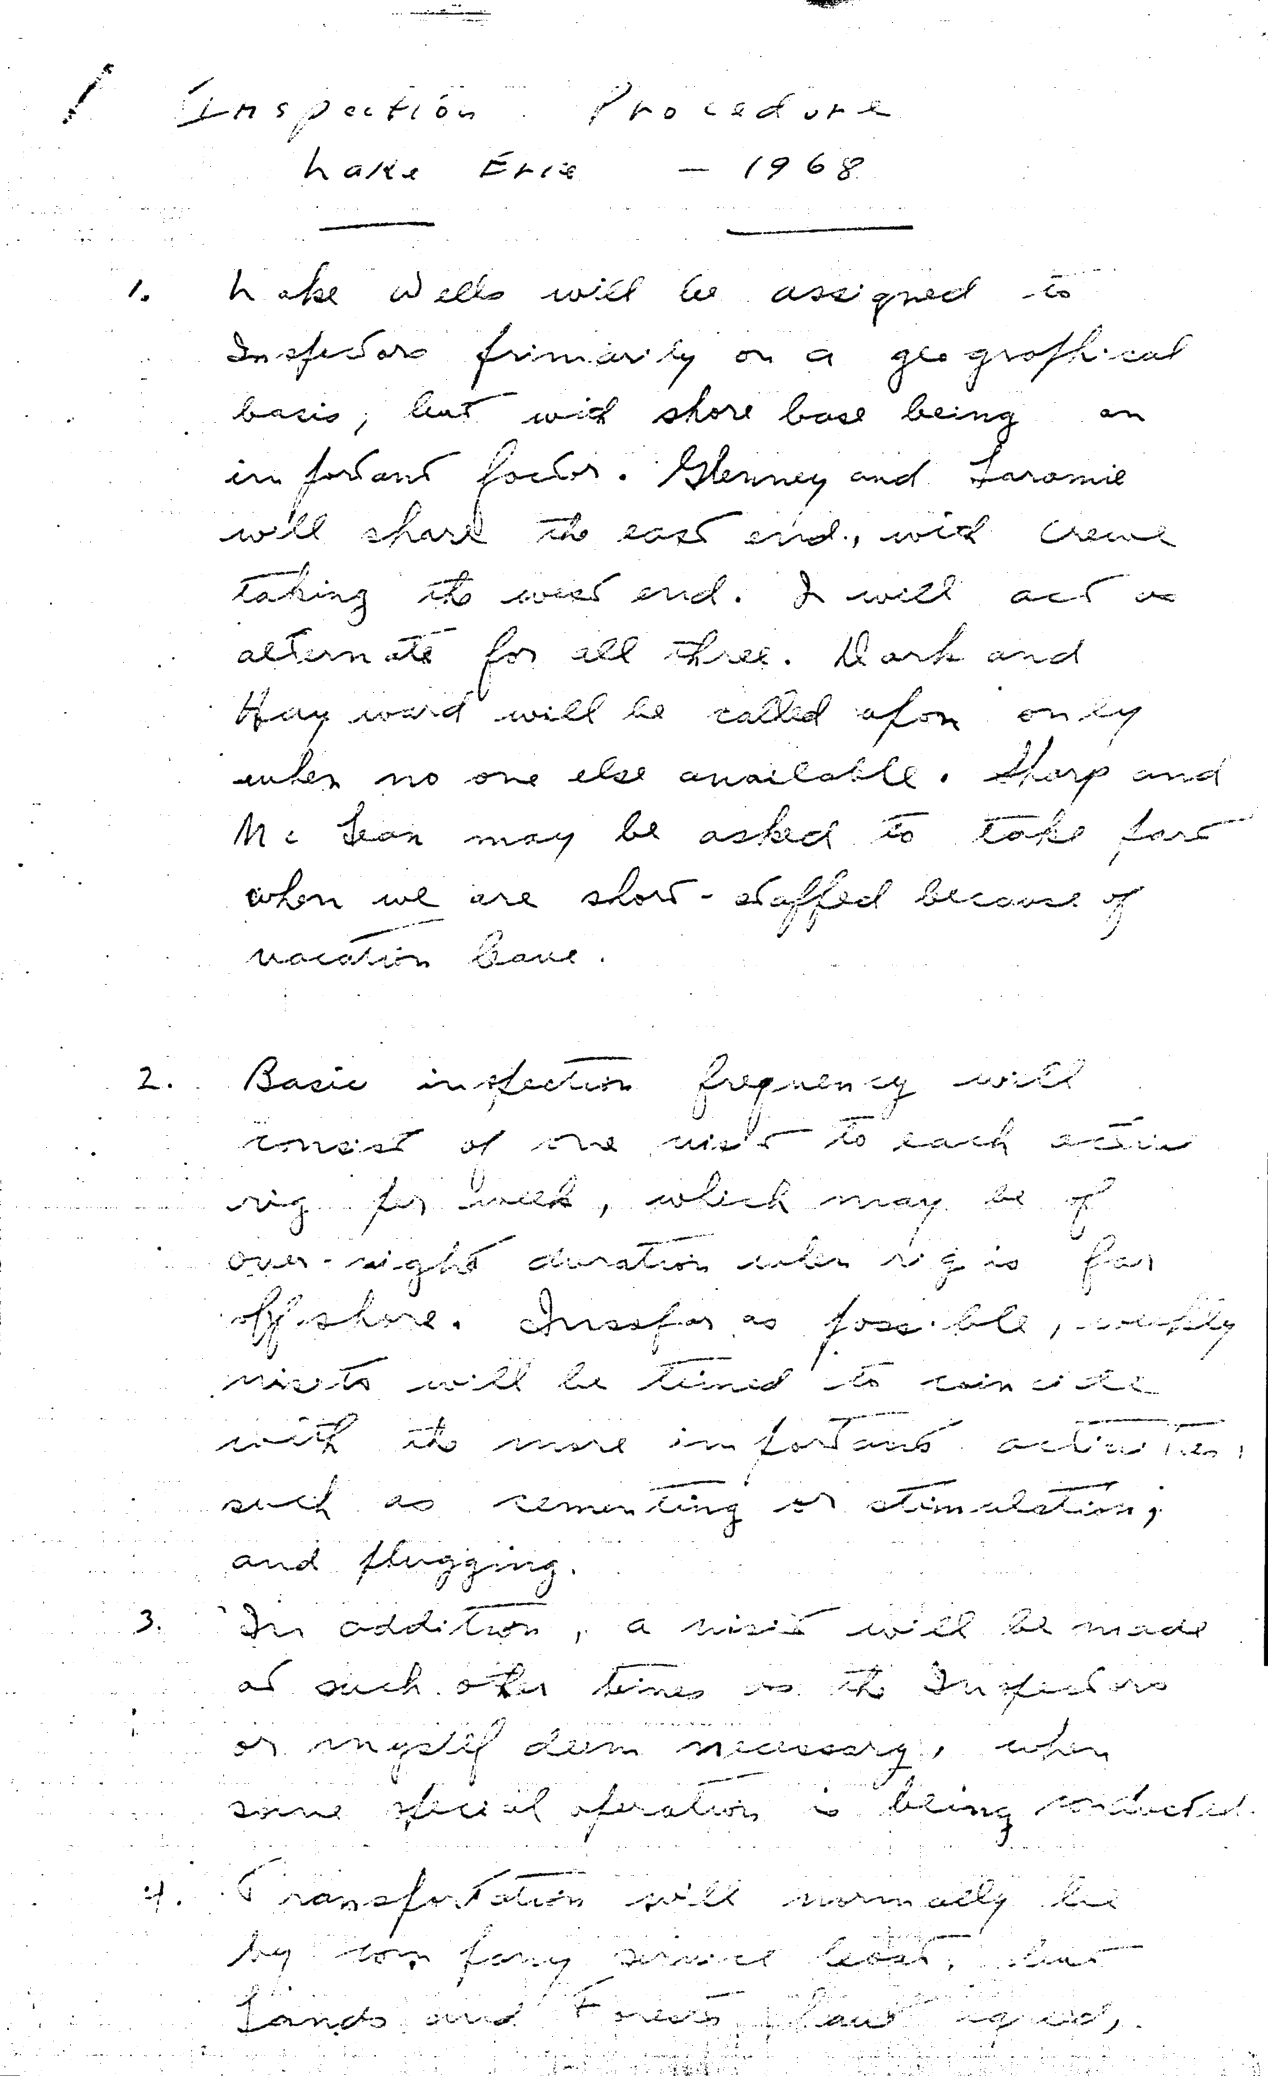 Inspection Procedure
Lake Erie - 1968
1. Lake Wells will be assigned to
Inspectors primarily on a geographical
basis, but with shore base being an
important factor. Glenney and Laramie
will share the east end, with Crewe
taking the west end. I will act as
alternate for all three. Dark and
Hayward will be called upon only
when no one else available. Sharp and
McLean may be asked to take part
when we are short-staffed because of
vacation leave.
2. Basic inspection frequency will
consist of one visit to each active
rig per week, which may be of
over-night duration when rig is far
offshore. Insofar as possible, weekly
visits will be timed to coincide
with the more important activities,
such as cementing or stimulation,
and plugging.
3. In addition, a visit will be made
at such other times as the Inspectors
or myself deem necessary, when
some special operation is being conducted.
4. Transportation will normally be
by company service boat, but
Lands and Forests have agreed,